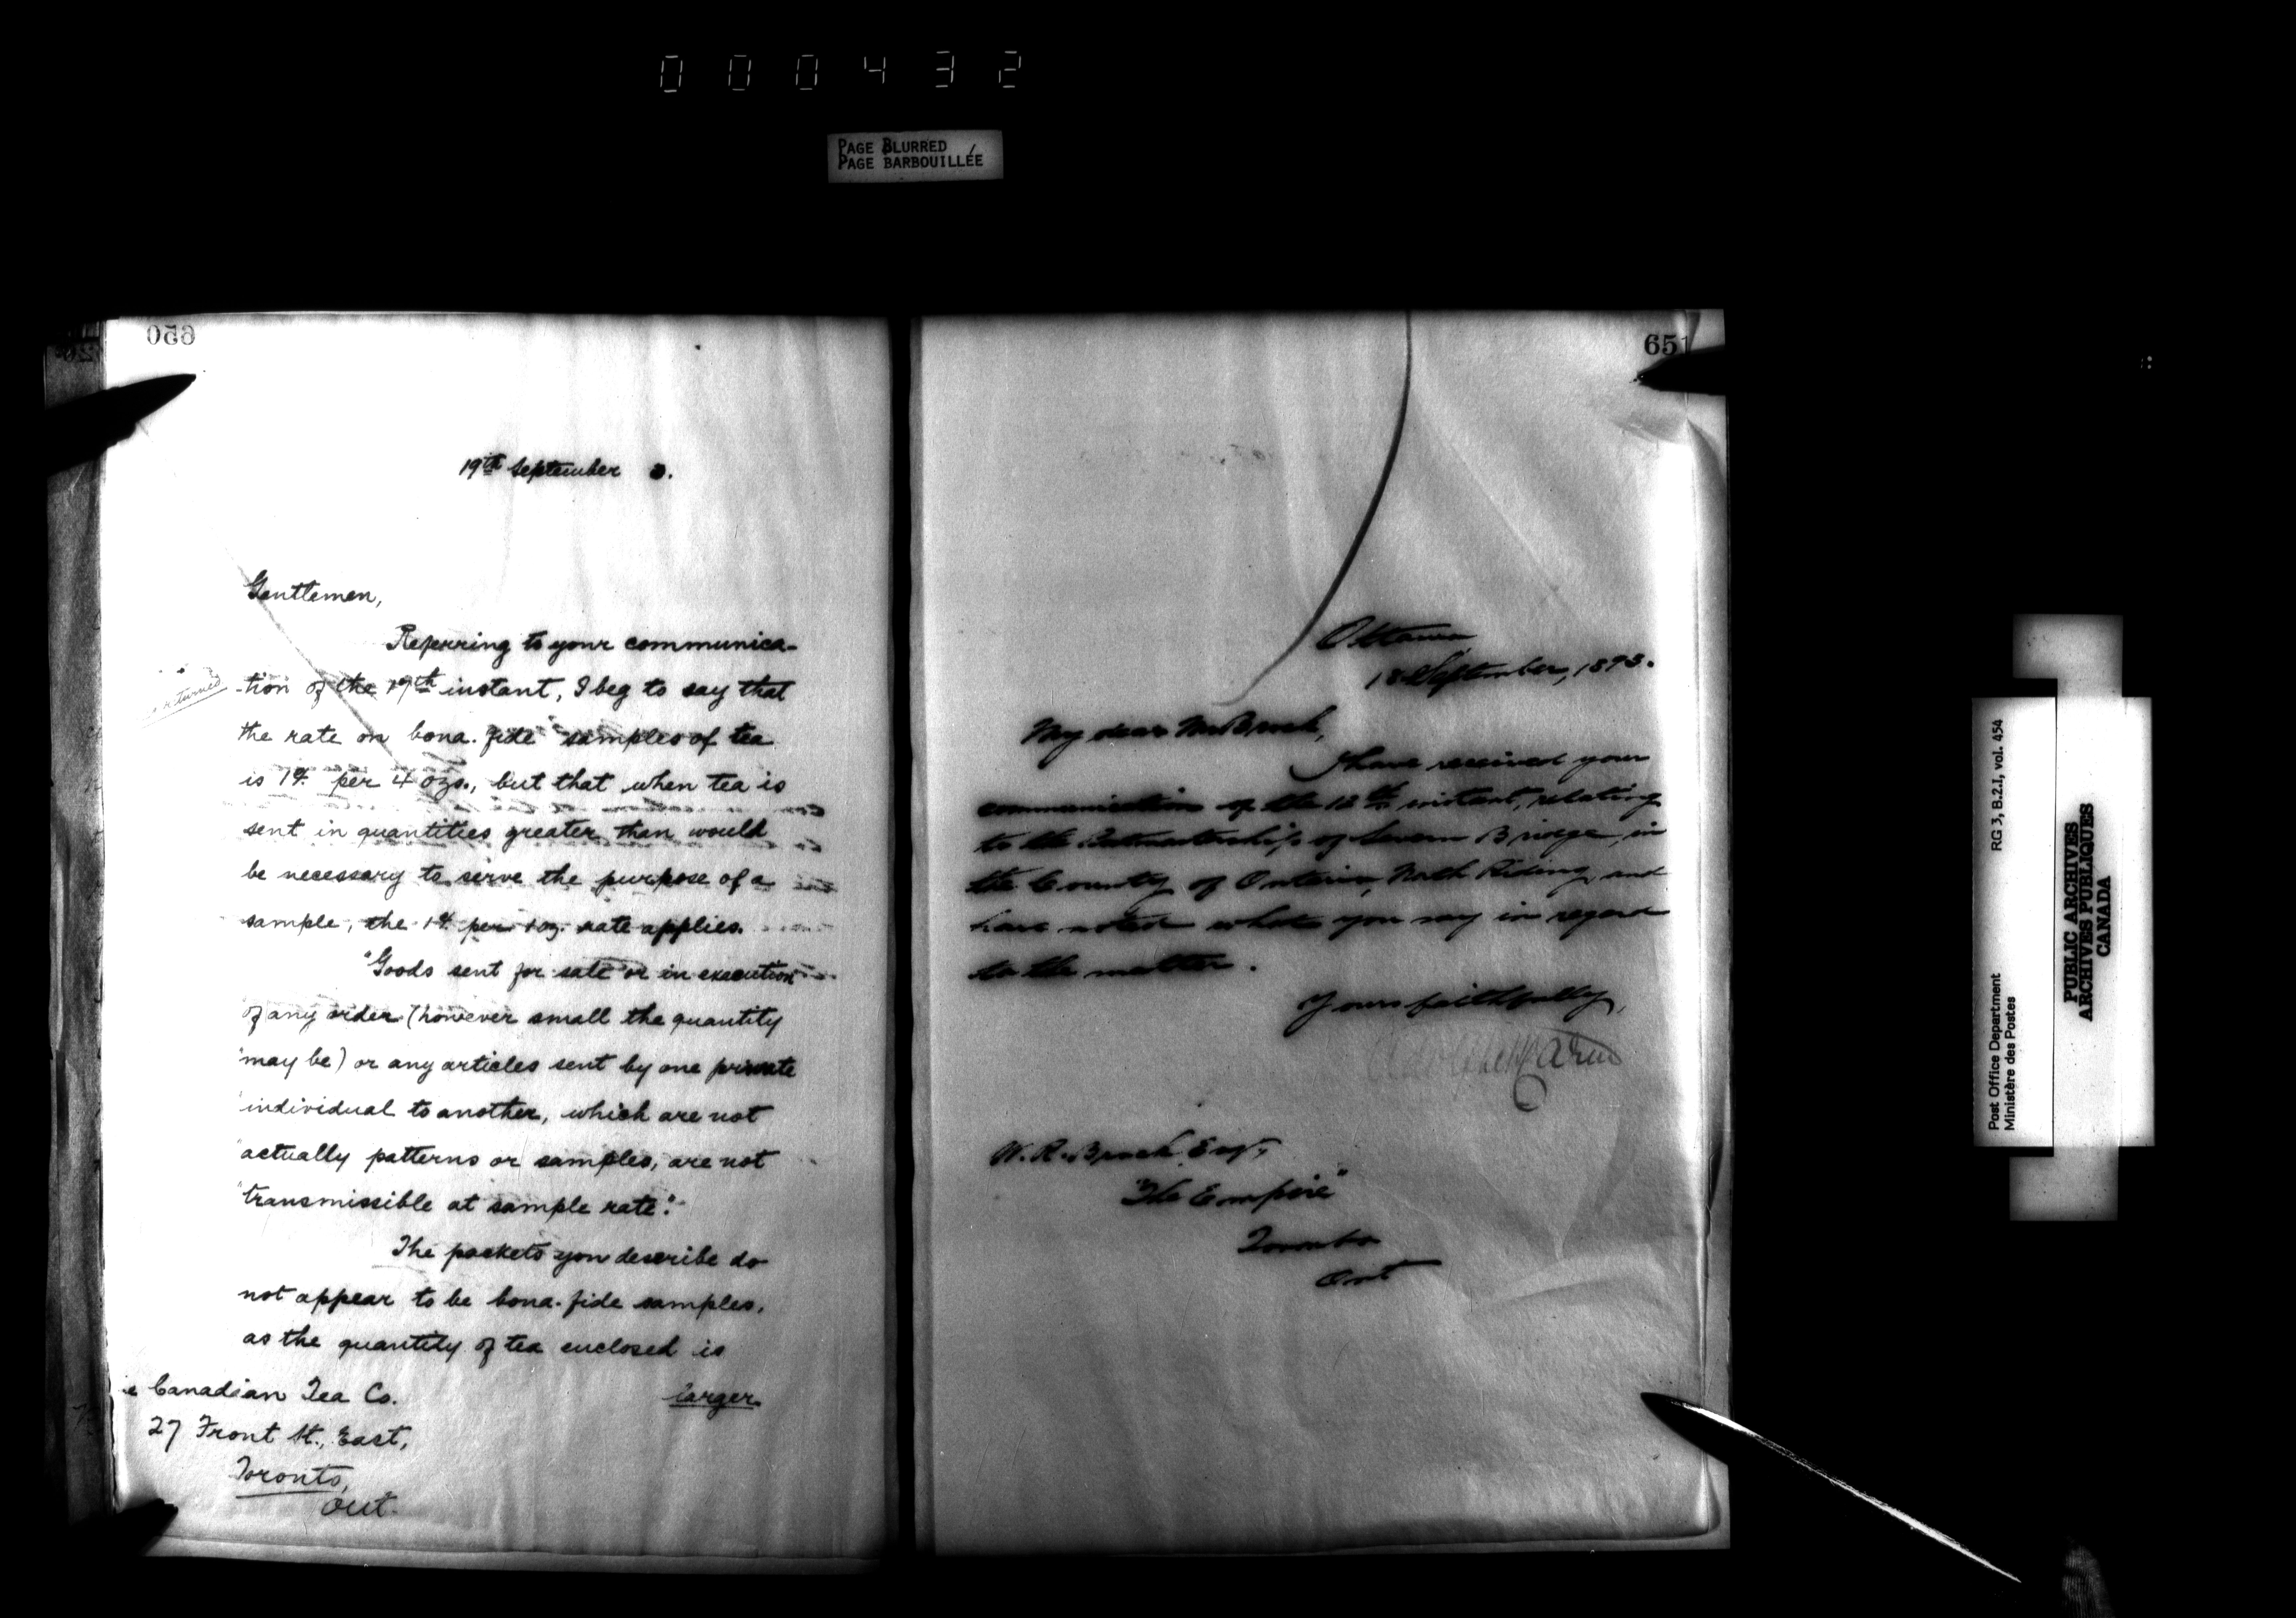 000432
PAGE BLURRED
PAGE BARBOUILLÉE
650
19th September 3.
Gentlemen,
Referring to your communica-
returned
-tion of the 19th instant, I beg to say that
the rate on bona. fide samples of tea
is 1¢ per 4 ozs., but that when tea is
sent in quantities greater than would
be necessary to serve the purpose of a
sample, the 1¢ per 1 oz. rate applies.
"Goods sent for sale or in execution
"of any order (however small the quantity
"may be) or any articles sent by one private
"individual to another, which are not
"actually patterns or samples, are not
"transmissible at sample rate."
The packets you describe do
not appear to be bona. fide samples,
as the quantity of tea enclosed is
larger
Canadian Tea Co.
27 Front St., East,
Toronto,
Ont.
651
Ottawa
18 September, 1893.
My dear Mr
I have received your
communication of the 12th instant, relating
to the Postmastership of Severn Bridge, in
the County of Ontario, North Riding, and
have noted what you say in regard
to the matter.
Yours faithfully,
Adolphe P Caron
W. R. Esq,
"The Empire"
Toronto
Ont
Post Office Department
Ministère des Postes
RG 3, B.2.I, vol. 454
PUBLIC ARCHIVES
ARCHIVES PUBLIQUES
CANADA